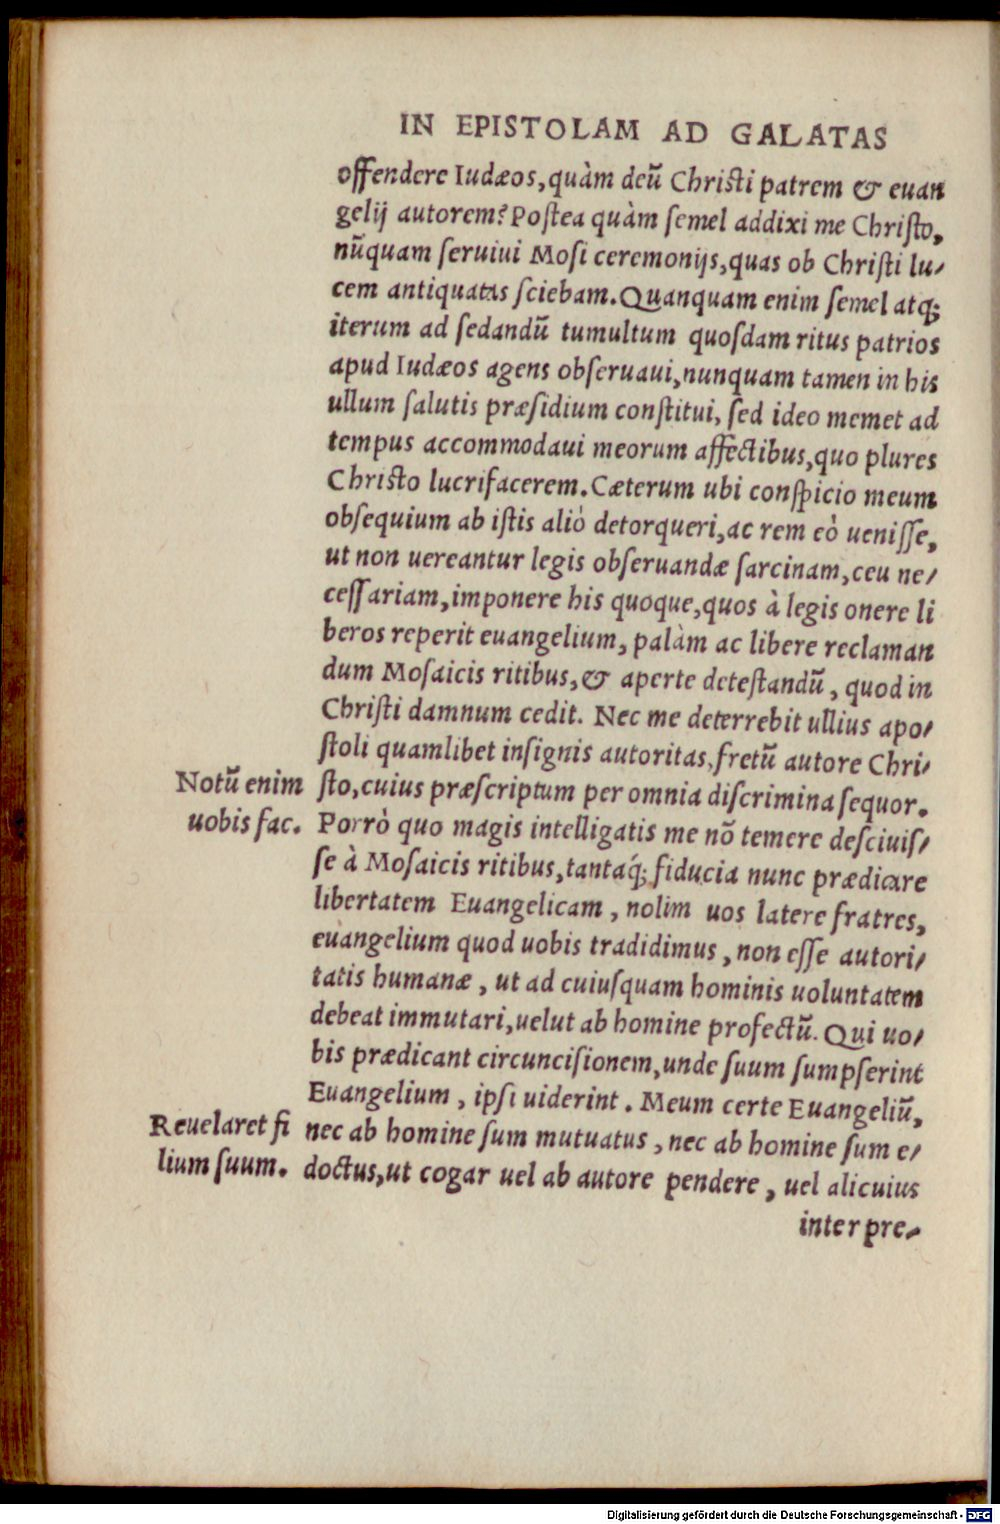 IN EPISTOLAM AD GALATAS
offendere Iudæos, quàm deũ Christi patrem & euan
gelij autorem? Postea quàm semel addixi me Christo,
nũquam seruiui Mosi ceremonijs, quas ob Christi lu-
cem antiquatas sciebam. Quanquam enim semel atq;
iterum ad sedandũ tumultum quosdam ritus patrios
apud Iudæos agens obseruaui, nunquam tamen in his
ullum salutis præsidium constitui, sed ideo memet ad
tempus accommodaui meorum affectibus, quo plures
Christo lucrifacerem. Cæterum ubi conspicio meum
obsequium ab istis aliò detorqueri, ac rem eò uenisse,
ut non uereantur legis obseruandæ sarcinam, ceu ne-
cessariam, imponere his quoque, quos à legis onere li
beros reperit euangelium, palàm ac libere reclaman
dum Mosaicis ritibus, & aperte detestandũ, quod in
Christi damnum cedit. Nec me deterrebit ullius apo-
stoli quamlibet insignis autoritas, fretũ autore Chri-
Notũ enim
uobis fac.
sto, cuius præscriptum per omnia discrimina sequor.
Porrò quo magis intelligatis me nõ temere desciuis-
se à Mosaicis ritibus, tantaq́; fiducia nunc prædicare
libertatem Euangelicam, nolim uos latere fratres,
euangelium quod uobis tradidimus, non esse autori-
tatis humanæ, ut ad cuiusquam hominis uoluntatem
debeat immutari, uelut ab homine profectũ. Qui uo-
bis prædicant circuncisionem, unde suum sumpserint
Euangelium, ipsi uiderint. Meum certe Euangeliũ,
Reuelaret fi
lium suum.
nec ab homine sum mutuatus, nec ab homine sum e-
doctus, ut cogar uel ab autore pendere, uel alicuius
interpre-
Digitalisierung gefördert durch die Deutsche Forschungsgemeinschaft - DFG